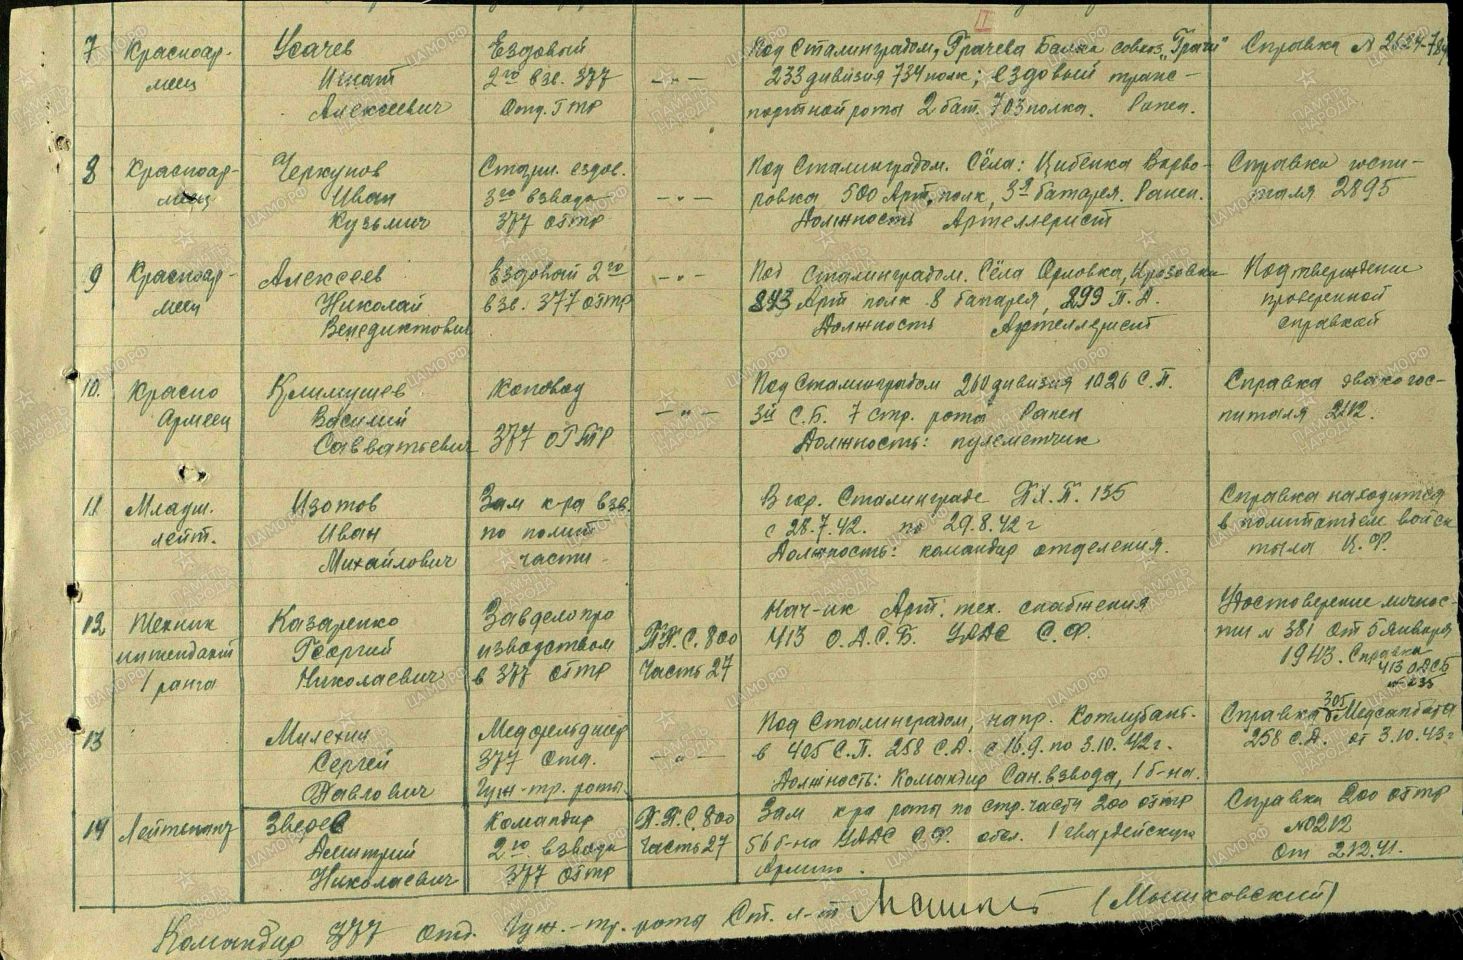 II
7 Красноар- Усачев Ездовый Под Сталинградом, Грачева Балка совхоз „Грачи" Справка N
меец Игнат 2го взв. 377 —„— 233 дивизия 734 полк; ездовый транс-
Алексеевич Отд. ГТР портной роты 2 бат. 703 полка. Ранен.
8 Красноар- Черкунов Старш. ездов. Под Сталинградом. Сёла: Цибенка Варва- Справка госпи-
меец Иван 3го взвода —„— ровка, 500 Арт. полк, 3я батарея. Ранен. таля 2895
Кузьмич 377 ОГТР Должность Артеллерист
9 Красноар- Алексеев Ездовый 2го —„— Под Сталинградом. Сёла Орловка, Подтверждение
меец Николай взв. 377 ОГТР 843 Арт полк 8 батарея, 299 П.Д. проверенной
Венедиктович Должность Артеллерист справкой
10. Красно Климушев Коновод Под Сталинградом 260 дивизия 1026 С.П. Справка эвакогос-
Армеец Василий —„— 3й С.Б. 7 стр. рота Ранен питаля 2112.
Савватьевич 377 ОГТР Должность: пулеметчик
11 Младш. Изотов Зам к-ра взв. В гор. Сталинграде П.П. 135 Справка находится
лейт. Иван по полит с 28.7.42. по 29.8.42 г в политотделе войск
Михайлович части - Должность: командир отделения. тыла Ц.Ф.
12 Техник Казаренко Завделопро Нач-ик Арт. тех. снабжения Удостоверение личнос-
интендант Георгий изводством П.П.С. 800 413 О.Д.С.Б. УАДС С.Ф. ти N 381 от 5 Января
1 ранга Николаевич в 377 ОГТР Часть 27 1943. Справка
413 ОДСБ
N 235
13 Милехин Медфельдшер Под Сталинградом, напр. Котлубань. Справка 305 Медсанбата
Сергей 377 Отд. —„— в 405 С.П. 258 С.Д. с 16.9. по 3.10.42 г. 258 С.Д. от 3.10.43 г
Павлович Гуж-тр. роты Должность: Командир Сан. взвода, 1 б-на.
14 Лейтенант Зверев Командир П.П.С. 800 Зам к-ра роты по стр. части 200 ОГТР Справка 200 ОГТР
Дмитрий 2го взвода Часть 27 56 б-на УАДС С.Ф. обсл. 1 гвардейскую N0212
Николаевич 377 ОГТР Армию. От 2.12.41.
Командир 377 отд. Гуж.-тр. роты Ст. л-т (Мышковский)
ЦАМО.РФ
ПАМЯТЬ
НАРОДА